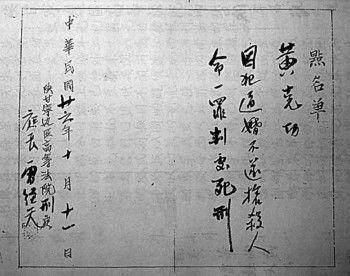 點名單
黃克功
因犯逼婚不遂槍殺人
命一罪判處死刑
中華民國廿六年十月十一日
陝甘寧邊區高等法院刑庭
庭長雷經天